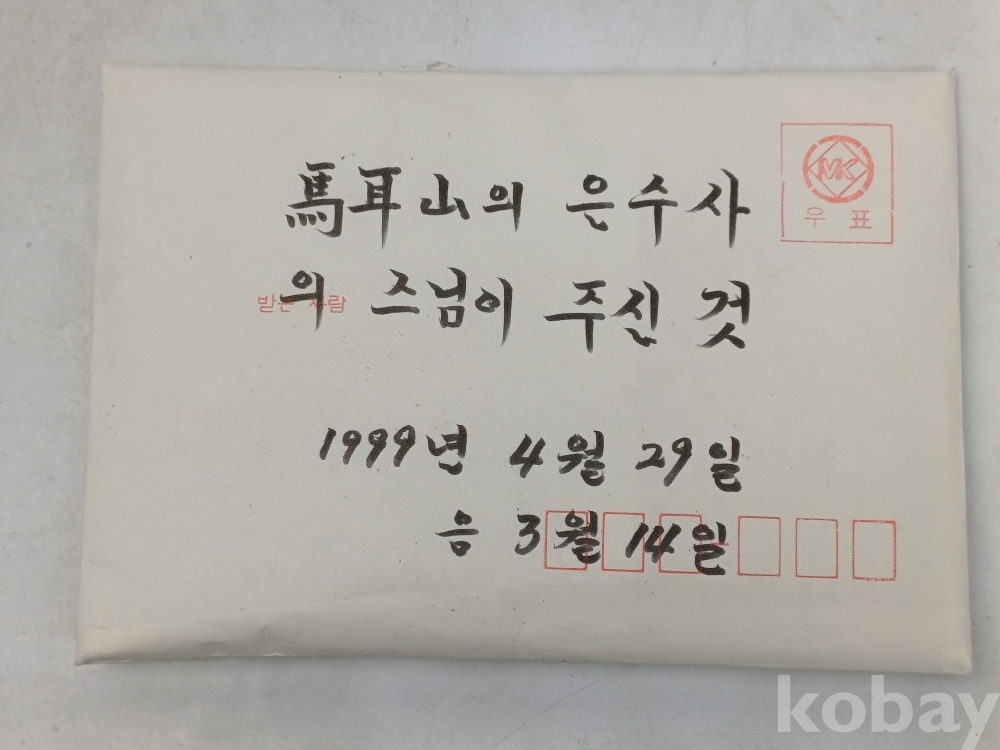 MK
우 표
馬耳山의 은수사
받는 사람
의 스님이 주신 것
1999년 4월 29일
음 3월 14일
kobay